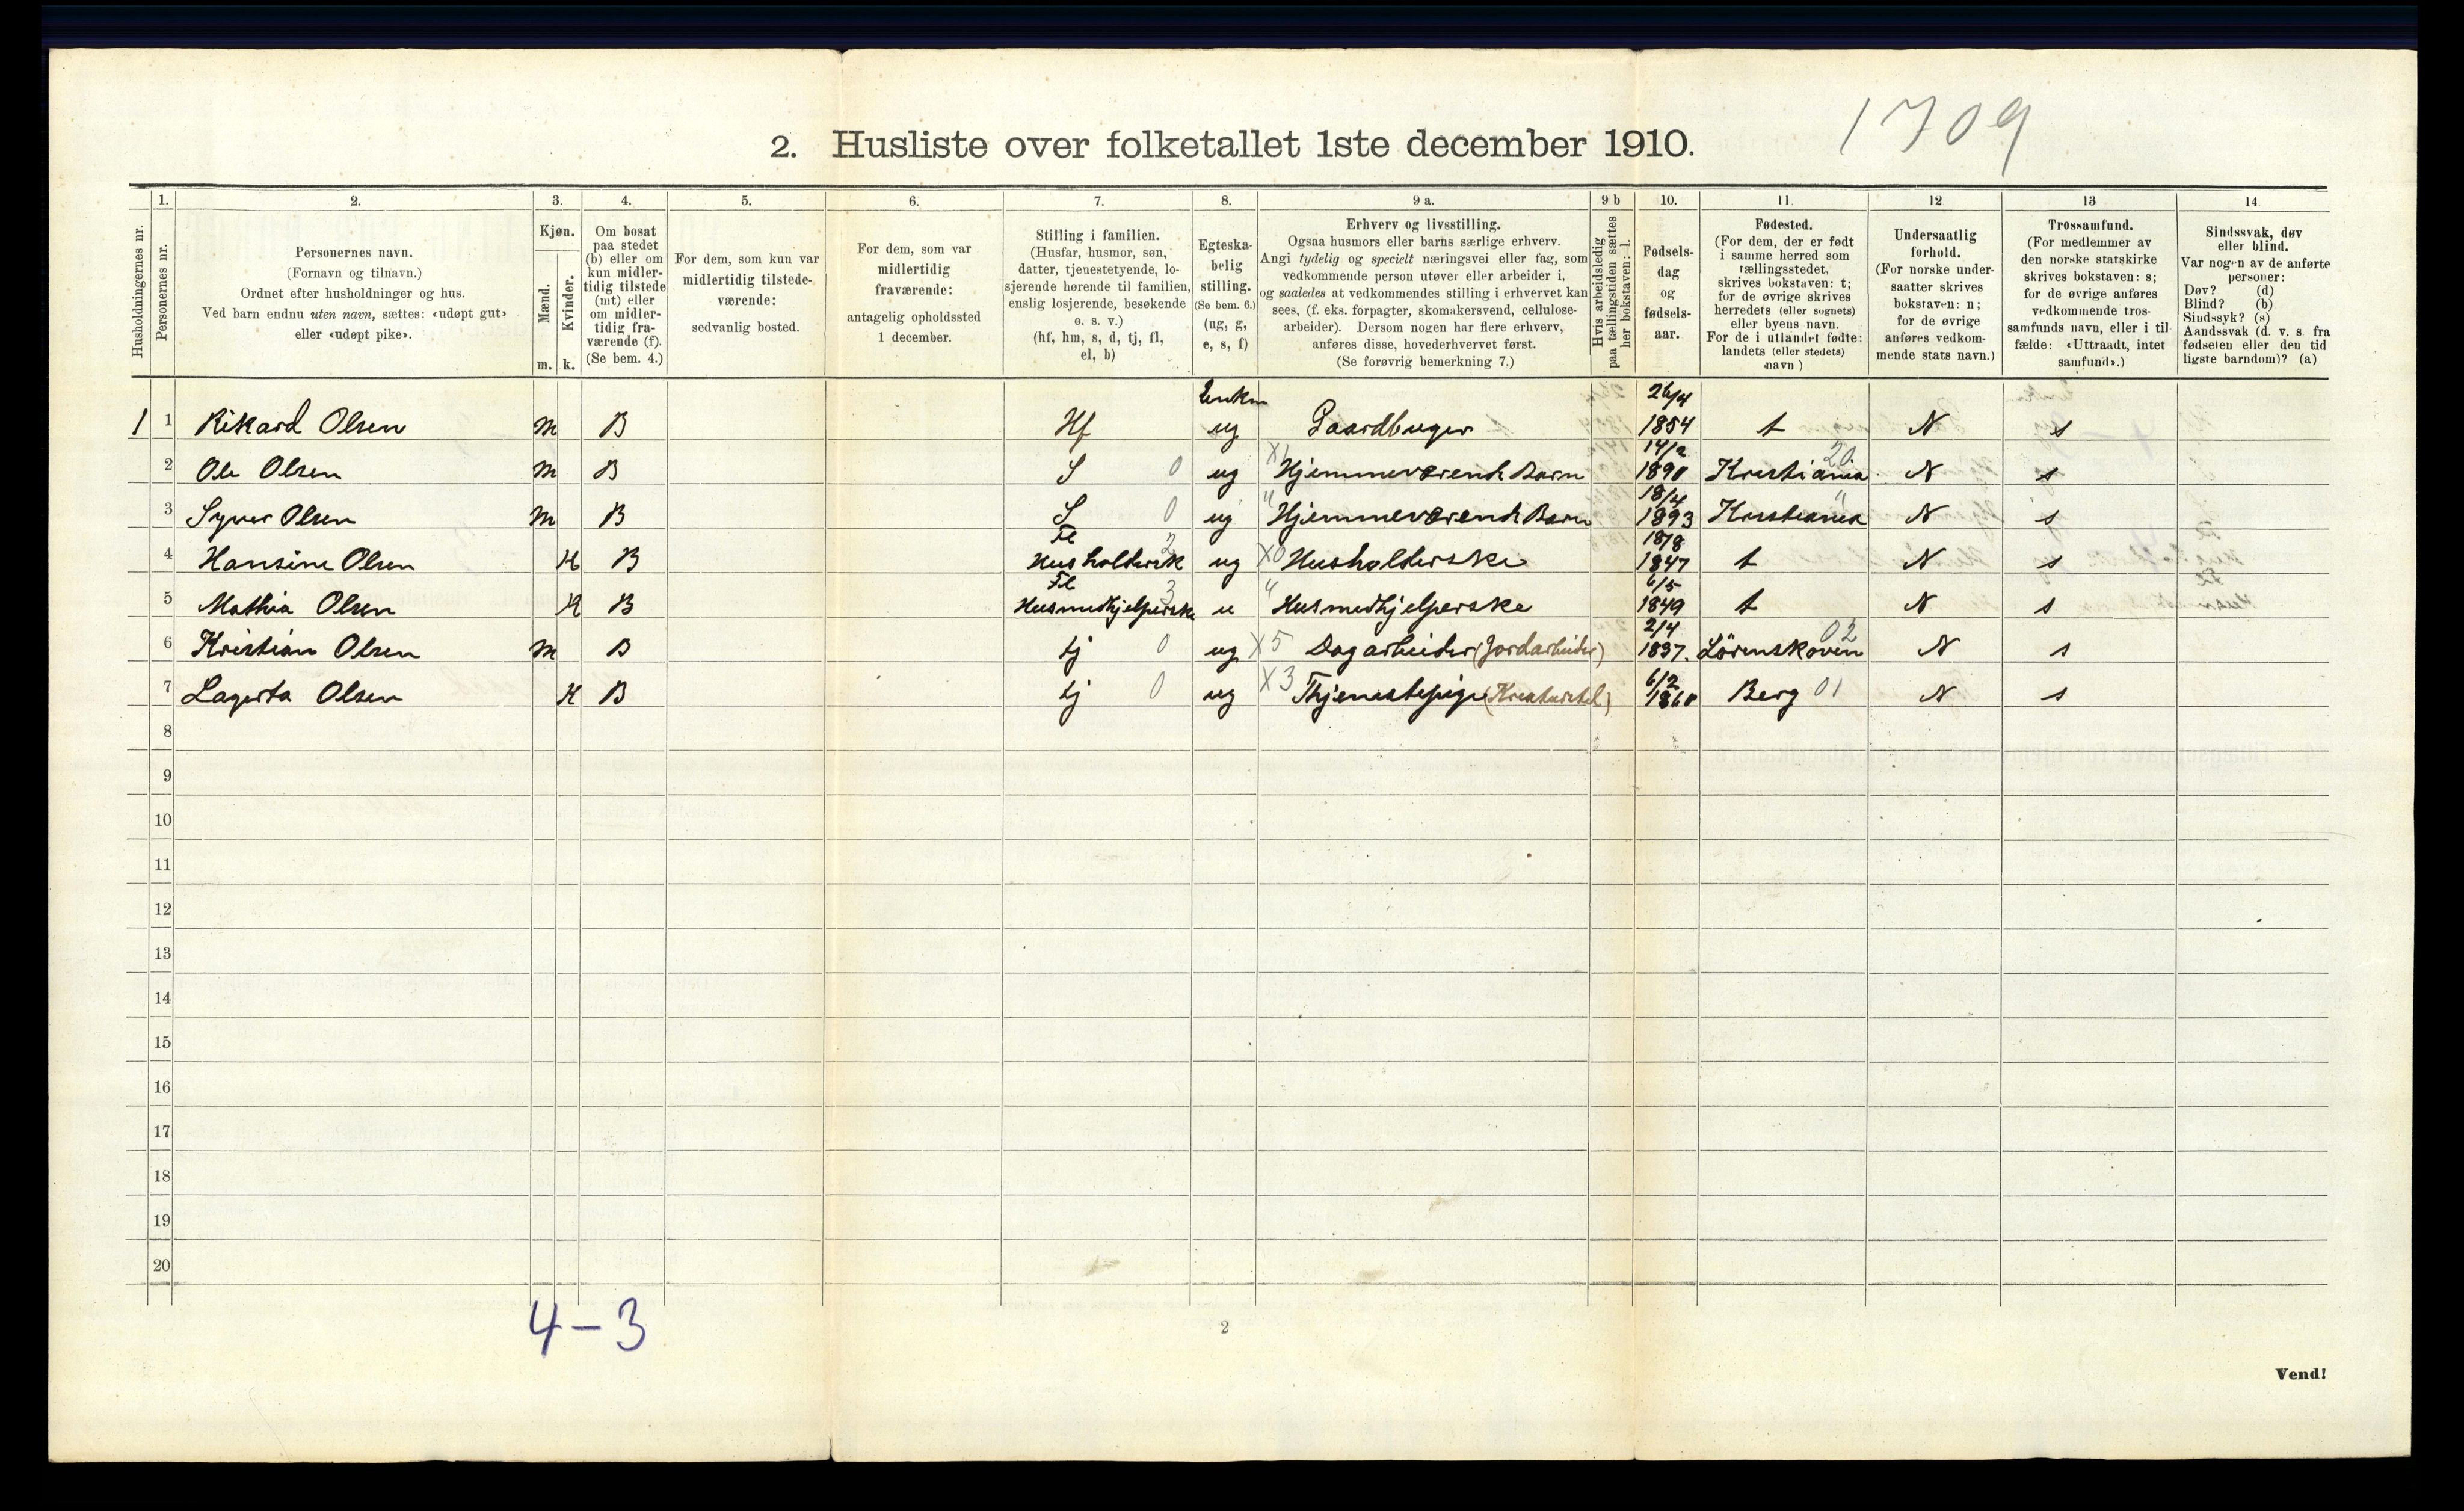 1709
2. Husliste over folketallet 1ste december 1910.
Husholdningernes nr.
1.
Personernes nr.
2.
Personernes navn.
(Fornavn og tilnavn.)
Ordnet efter husholdninger og hus.
Ved barn endnu uten navn, sættes: «udøpt gut»
eller «udøpt pike».
3.
Kjøn.
Mænd.
Kvinder.
m. k.
4.
Om bosat
paa stedet
(b) eller om
kun midler-
tidig tilstede
(mt) eller
om midler-
tidig fra-
værende (f).
(Se bem. 4.)
5.
For dem, som kun var
midlertidig tilstede-
værende:
sedvanlig bosted.
6.
For dem, som var
midlertidig
fraværende:
antagelig opholdssted
1 december.
7.
Stilling i familien.
(Husfar, husmor, søn,
datter, tjenestetyende, lo-
sjerende hørende til familien,
enslig losjerende, besøkende
o. s. v.)
(hf, hm, s, d, tj, fl,
el, b)
8.
Egteska-
belig
stilling.
(Se bem. 6.)
(ug, g,
e, s, f)
9 a.
Erhverv og livsstilling.
Ogsaa husmors eller barns særlige erhverv.
Angi tydelig og specielt næringsvei eller fag, som
vedkommende person utøver eller arbeider i,
og saaledes at vedkommendes stilling i erhvervet kan
sees, (f. eks. forpagter, skomakersvend, cellulose-
arbeider). Dersom nogen har flere erhverv,
anføres disse, hovederhvervet først.
(Se forøvrig bemerkning 7.)
9 b
Hvis arbeidsledig
paa tællingstiden sættes
her bokstaven: l.
10.
Fødsels-
dag
og
fødsels-
aar.
11.
Fødested.
(For dem, der er født
i samme herred som
tællingsstedet,
skrives bokstaven: t;
for de øvrige skrives
herredets (eller sognets)
eller byens navn.
For de i utlandet fødte:
landets (eller stedets)
navn)
12
Undersaatlig
forhold.
(For norske under-
saatter skrives
bokstaven: n;
for de øvrige
anføres vedkom-
mende stats navn.)
13
Trossamfund.
(For medlemmer av
den norske statskirke
skrives bokstaven: s;
for de øvrige anføres
vedkommende tros-
samfunds navn, eller i til
fælde: «Uttraadt, intet
samfund».)
14
Sindssvak, døv
eller blind.
Var nogen av de anførte
personer:
Døv? (d)
Blind? (b)
Sindssyk? (s)
Aandssvak (d. v. s. fra
fødselen eller den tid
ligste barndom)? (a)
1 1 Rikard Olsen m B Hf Enkm ug Gaardbruger 26/4 1854 t N s
2 Ole Olsen m B S 0 ug X1 Hjemmeværende Barn 14/2 1890 Kristiania 20 N s
3 Syver Olsen m B S 0 ug " Hjemmeværende Barn 18/4 1893 Kristiania " N s
4 Hansine Olsen K B Fl Husholdersk 2 ug X0 Husholderske 18/8 1847 t N s
5 Mathia Olsen K B Fl Husmedhjelperske 3 u " Husmedhjelperske 6/5 1849 t N s
6 Kristian Olsen m B tj 0 ug X5 Dagarbeider (Jordarbeider) 2/4 1837. Lörenskoven 02 N s
7 Lagerta Olsen K B tj 0 ug X3 Thjenestepige (Kreaturstel) 6/2 1860 Berg 01 N s
8
9
10
11
12
13
14
15
16
17
18
19
20
4-3
2
Vend!